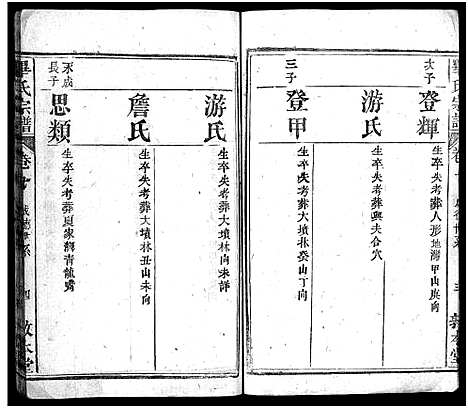 畢氏宗譜
卷十
三
敦本堂
次子
登輝
生卒失考葬人形地灣甲山庚向
游氏
生卒失考葬與夫合穴
三子
登甲
生卒失考葬大墳林癸山丁向
游氏
生卒失考葬大墳林向未詳
詹氏
生卒失考葬大墳林丑山未向
永成
長子
思類
畢氏宗譜
卷十
四
敦本堂